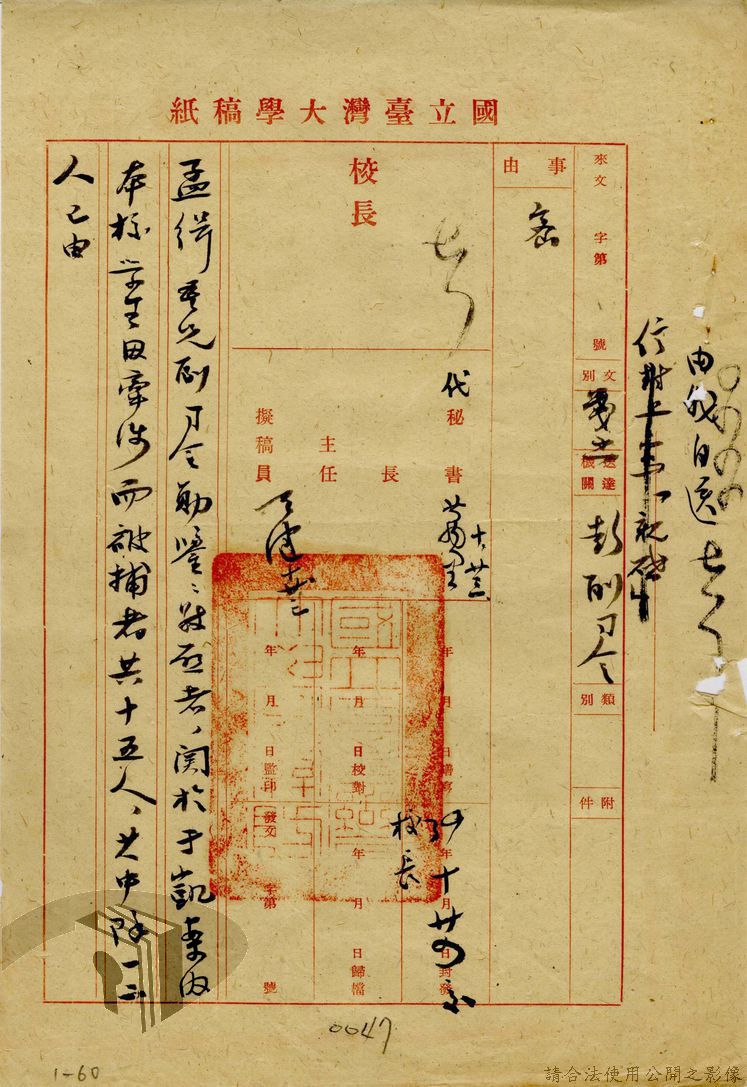 國立臺灣大學稿紙
由 自送
來文 字第 號
文別
送達機關 彭副司令
類別
附件
事由
密
校長
代
秘書
長
主任
擬稿員
年 月 日繕寫
年 月 日校對
年 月 日監印
年 月 日封發
年 月 日歸檔
發文 字第 號
校長
十 廿四
孟緝吾兄副司令勛鑒：敬啟者，関於于凱案內
本校學生因牽涉而被捕者共十五人，其中除一二
人已由
0047
1-60
請合法使用公開之影像